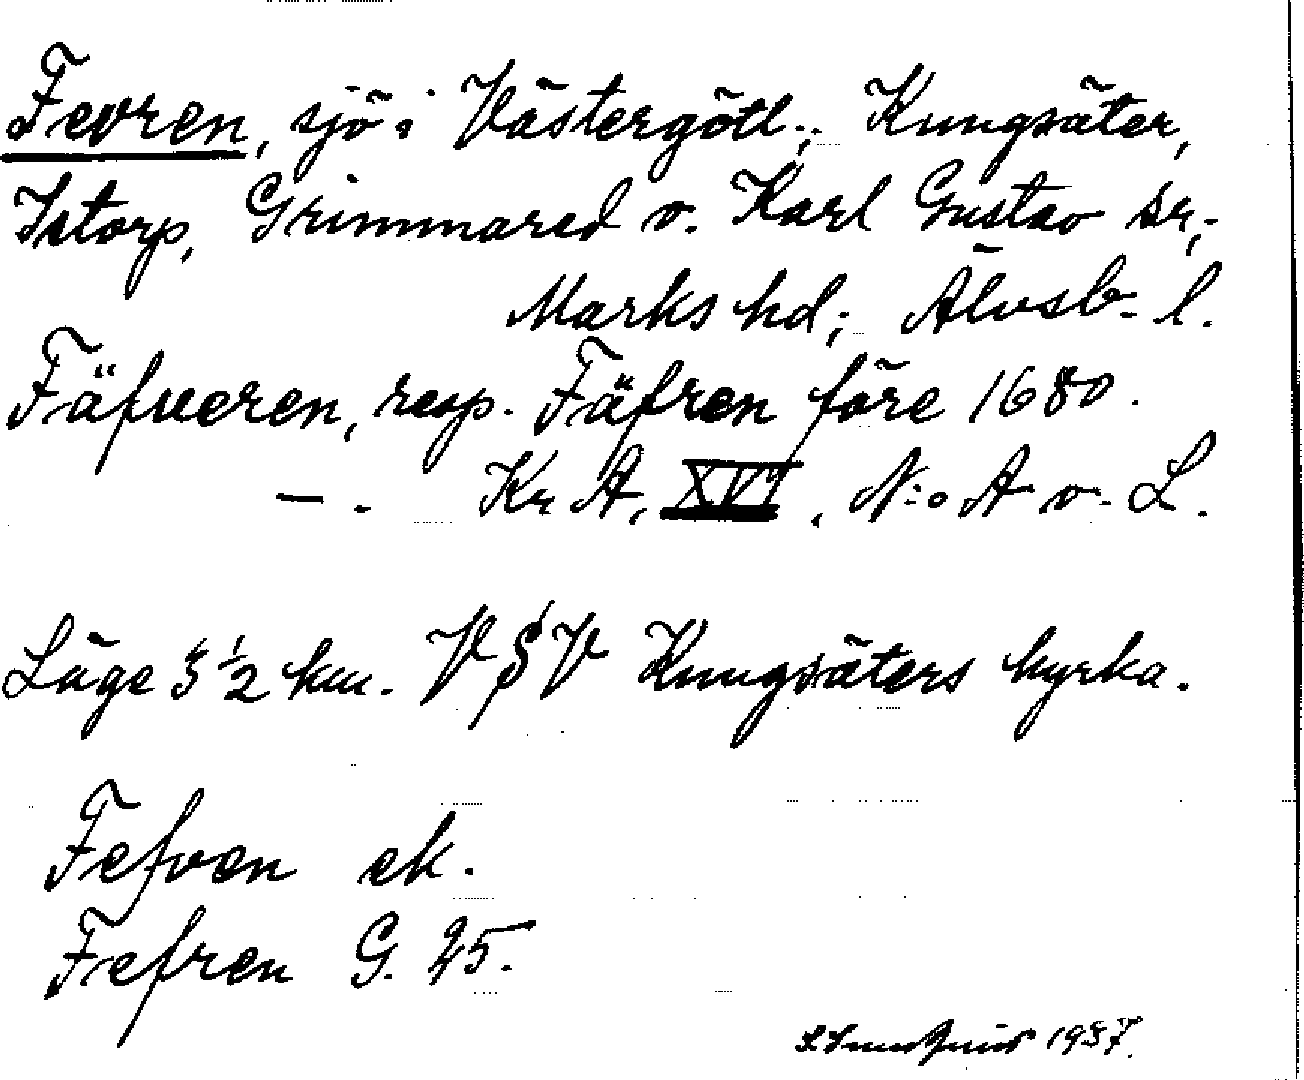 Fevren, sjö i Västergötl.; Kungsäter,
Istorp, Grimmared o. Karl Gustav sr,-
Marks hd; Älvsb- l.
Fäfveren, resp. Fäfren före 1680.
— . Kr A, XVI, N:o A o. L.
Läge 5 ½ km. V § V Kungsäters kyrka.
Fefven ek.
Fefren G. 25.
1937.